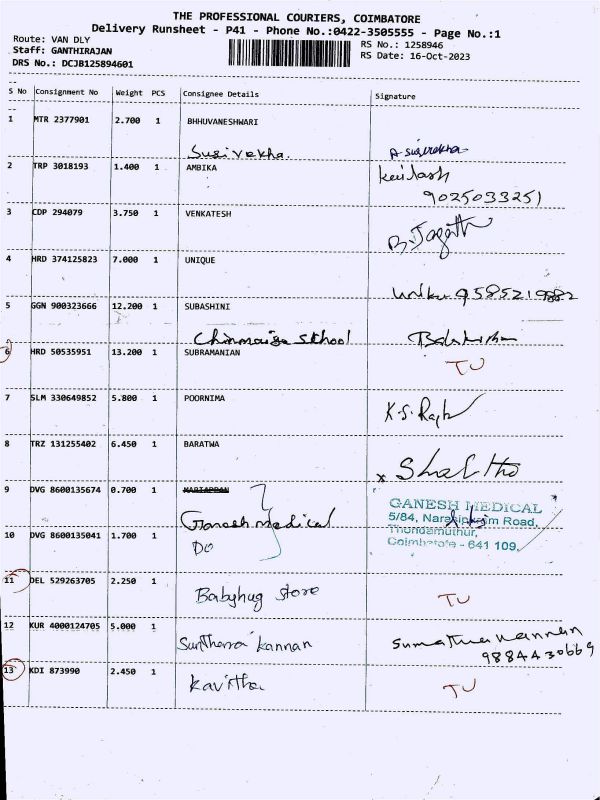 THE PROFESSIONAL COURIERS, COIMBATORE
Delivery Runsheet - P41 - Phone No.:0422-3505555 - Page No.:1
Route: VAN DLY
Staff: GANTHIRAJAN
DRS No.: DCJB125894601
RS No.: 1258946
RS Date: 16-Oct-2023
S No Consignment No Weight PCS Consignee Details Signature
1 MTR 2377901 2.700 1 BHHUVANESHWARI
Susivekha.
2 TRP 3018193 1.400 1 AMBIKA
9025033251
3 CDP 294079 3.750 1 VENKATESH B. Jagath
4 HRD 374125823 7.000 1 UNIQUE
9585219882
5 GGN 900323666 12.200 1 SUBASHINI
School
6 HRD 50535951 13.200 1 SUBRAMANIAN TU
7 SLM 330649852 5.800 1 POORNIMA K.S. Raje
8 TRZ 131255402 6.450 1 BARATWA
9 DVG 8600135674 0.700 1 MARIAPPAN
Ganesh medical
GANESH MEDICAL
5/84, Narasipuram Road,
Thondamuthur,
Coimbatore - 641 109.
10 DVG 8600135041 1.700 1
DO
11 DEL 529263705 2.250 1 Babyhug store TU
12 KUR 4000124705 5.000 1 kannan
9884430669
13 KDI 873990 2.450 1 Kavitha TU